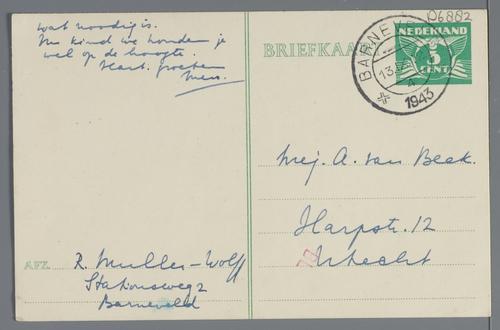 wat noodig is.
Nu kind we houden je
wel op de hoogte.
Hart. groeten
06882
BRIEFKAAR
NEDERLAND
5
CENT
BARNEVE
13
4
1943
Mej. A. van Beek.
Harpstr. 12
Utrecht
AFZ.
R. Muller-Wolff
Stationsweg 2
Barneveld